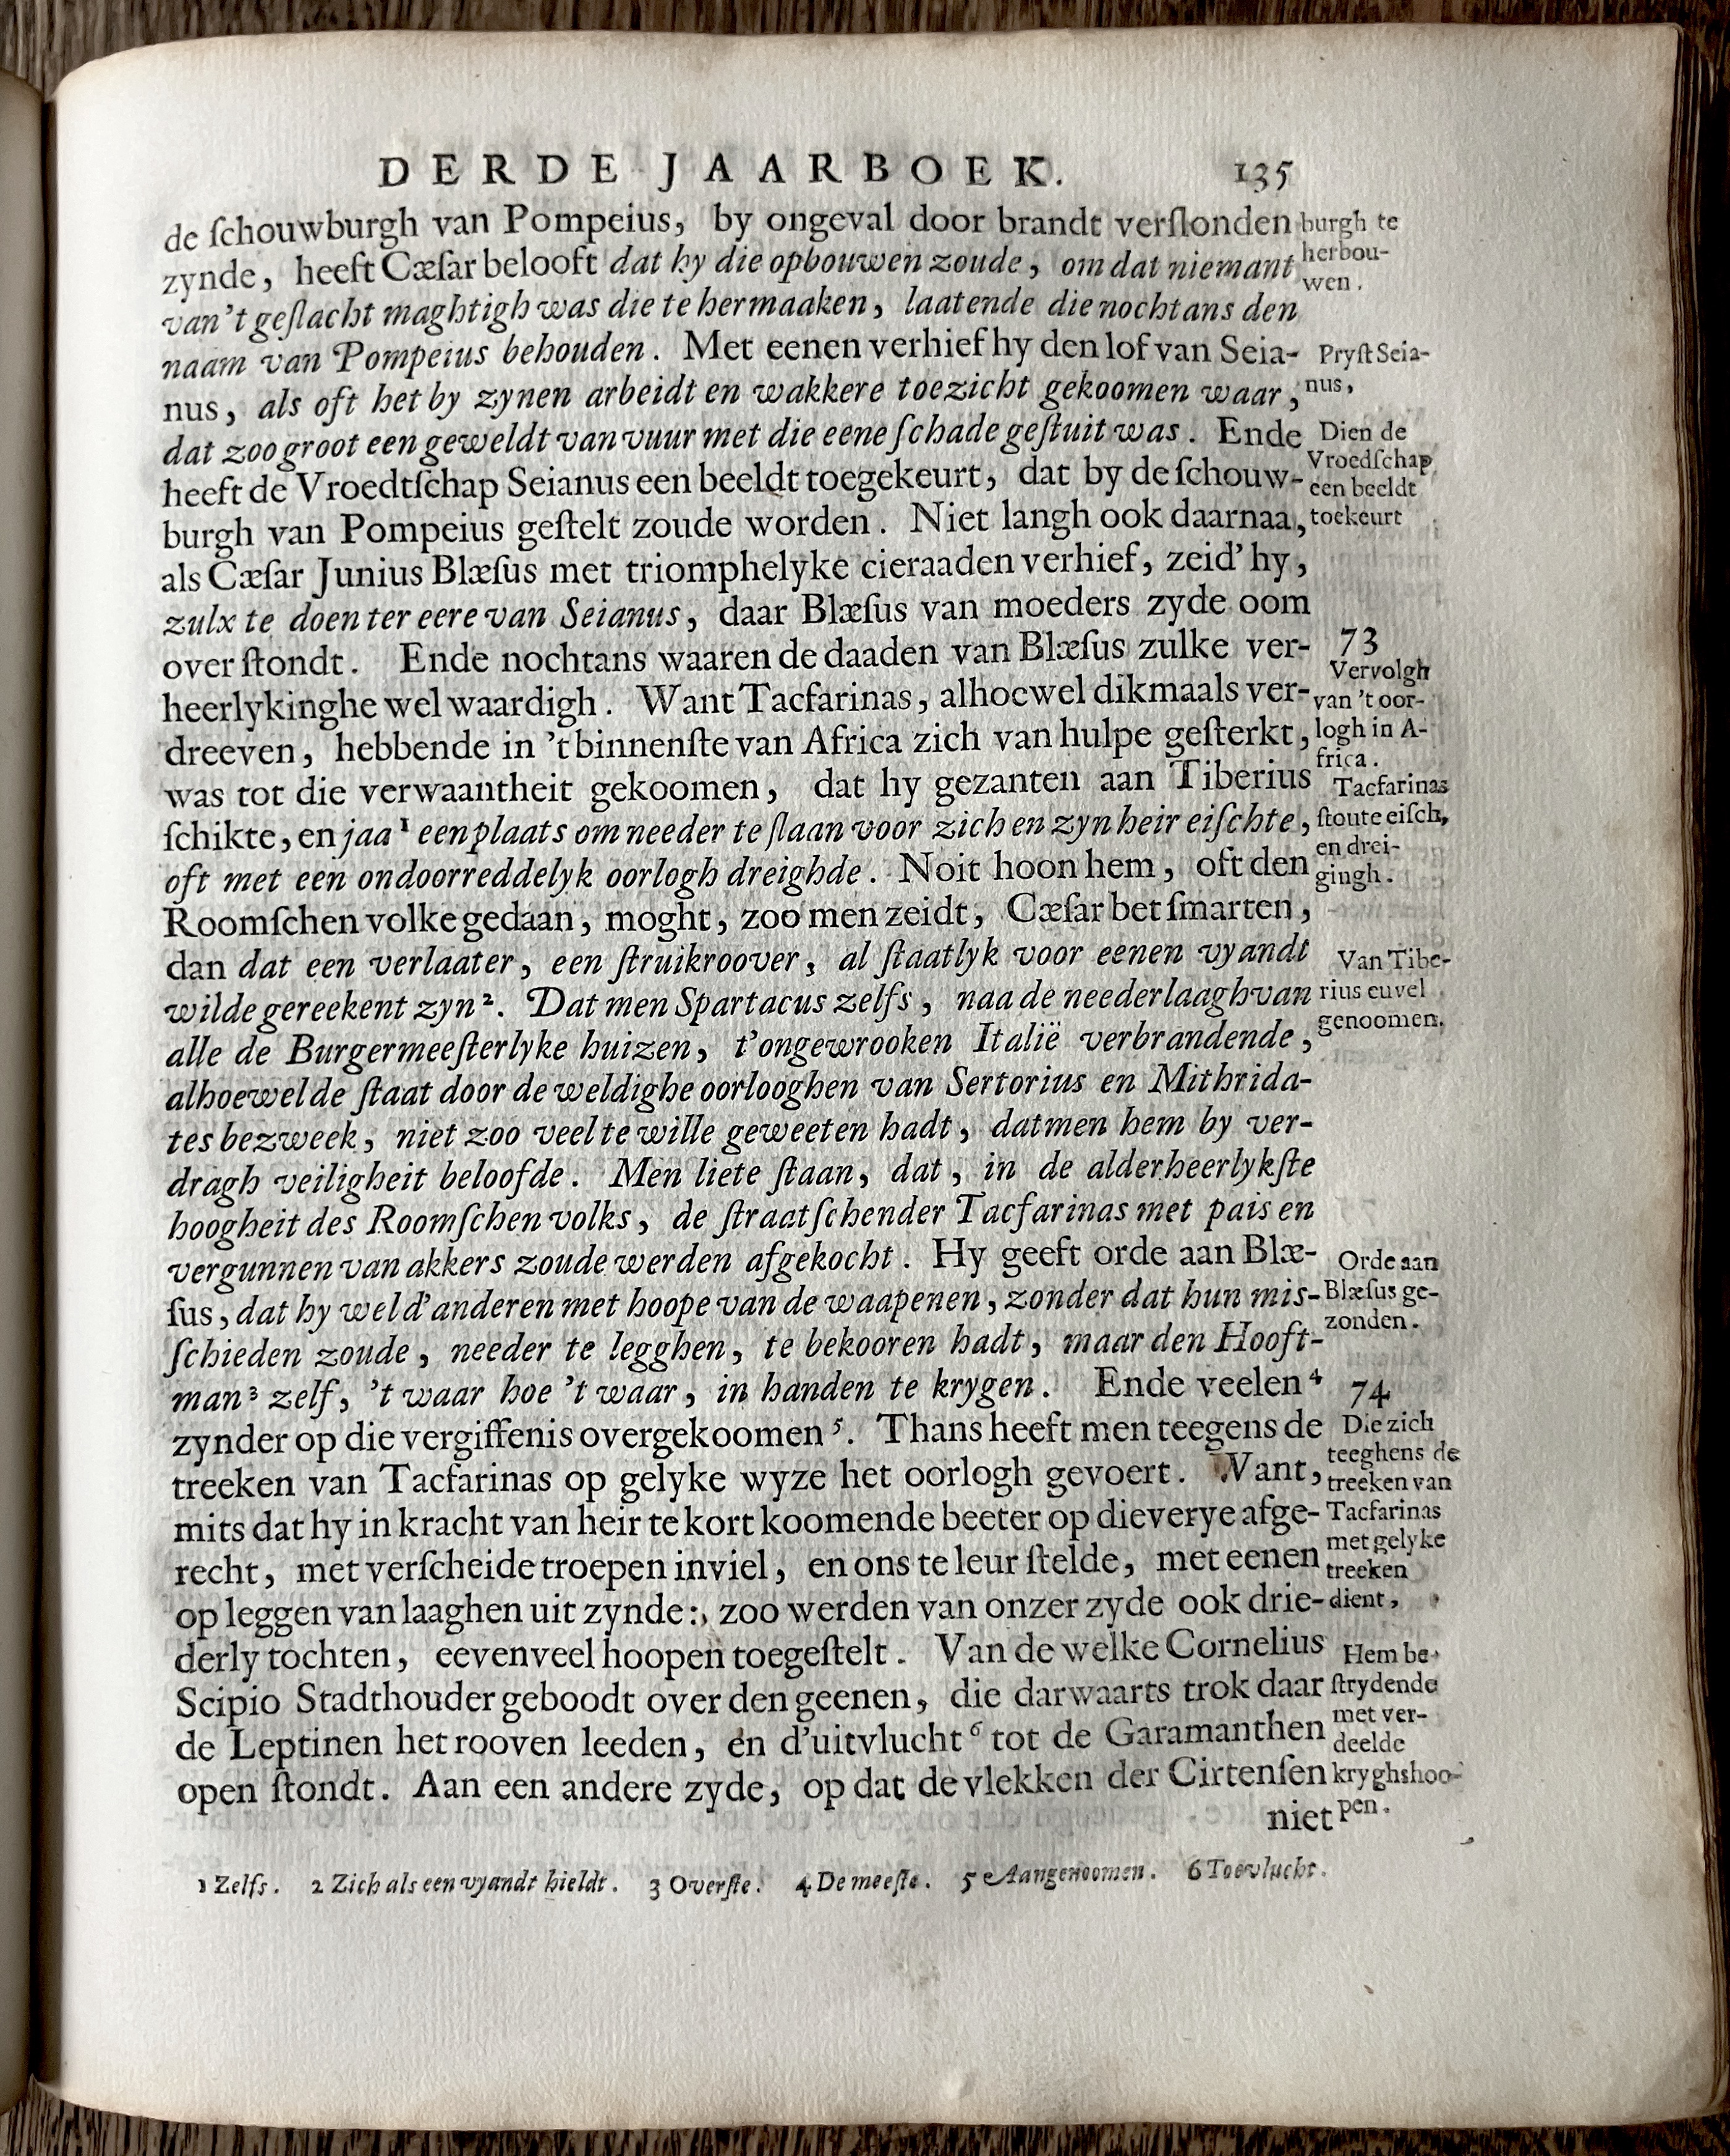 DERDE JAARBOEK. 135
de ſchouwburgh van Pompeius, by ongeval door brandt verſlonden
zynde, heeft Cæſar belooft dat hy die opbouwen zoude, om dat niemant
van't geſlacht maghtigh was die te hermaaken, laatende die nochtans den
naam van Pompeius behouden. Met eenen verhief hy den lof van Seia-
nus, als oft het by zynen arbeidt en wakkere toezicht gekoomen waar,
dat zoo groot een geweldt van vuur met die eene ſchade geſtuit was. Ende
heeft de Vroedtſchap Seianus een beeldt toegekeurt, dat by de ſchouw-
burgh van Pompeius geſtelt zoude worden. Niet langh ook daarnaa,
als Cæſar Junius Blæſus met triomphelyke cieraaden verhief, zeid' hy,
zulx te doen ter eere van Seianus, daar Blæſus van moeders zyde oom
over ſtondt. Ende nochtans waaren de daaden van Blæſus zulke ver-
heerlykinghe wel waardigh. Want Tacfarinas, alhoewel dikmaals ver-
dreeven, hebbende in 't binnenſte van Africa zich van hulpe geſterkt,
was tot die verwaantheit gekoomen, dat hy gezanten aan Tiberius
ſchikte, en jaa 1 een plaats om needer te ſlaan voor zich en zyn heir eiſchte,
oft met een ondoorreddelyk oorlogh dreighde. Noit hoon hem, oft den
Roomſchen volke gedaan, moght, zoo men zeidt, Cæſar bet ſmarten,
dan dat een verlaater, een ſtruikroover, al ſtaatlyk voor eenen vyandt
wilde gereekent zyn 2. Dat men Spartacus zelfs, naa de neederlaagh van
alle de Burgermeeſterlyke huizen, t'ongewrooken Italië verbrandende,
alhoewel de ſtaat door de weldighe oorlooghen van Sertorius en Mithrida-
tes bezweek, niet zoo veel te wille geweeten hadt, datmen hem by ver-
dragh veiligheit beloofde. Men liete ſtaan, dat, in de alderheerlykſte
hoogheit des Roomſchen volks, de ſtraatſchender Tacfarinas met pais en
vergunnen van akkers zoude werden afgekocht. Hy geeft orde aan Blæ-
ſus, dat hy wel d'anderen met hoope van de waapenen, zonder dat hun mis-
ſchieden zoude, needer te legghen, te bekooren hadt, maar den Hooft-
man 3 zelf, 't waar hoe 't waar, in handen te krygen. Ende veelen 4
zynder op die vergiffenis overgekoomen 5. Thans heeft men teegens de
treeken van Tacfarinas op gelyke wyze het oorlogh gevoert. Want,
mits dat hy in kracht van heir te kort koomende beeter op dieverye afge-
recht, met verſcheide troepen inviel, en ons te leur ſtelde, met eenen
op leggen van laaghen uit zynde:, zoo werden van onzer zyde ook drie-
derly tochten, eevenveel hoopen toegeſtelt. Van de welke Cornelius
Scipio Stadthouder geboodt over den geenen, die darwaarts trok daar
de Leptinen het rooven leeden, en d'uitvlucht 6 tot de Garamanthen
open ſtondt. Aan een andere zyde, op dat de vlekken der Cirtenſen
niet
burgh te
herbou-
wen.
Pryſt Seia-
nus,
Dien de
Vroedſchap
een beeldt
toekeurt
73
Vervolgh
van 't oor-
logh in A-
frica.
Tacfarinas
ſtoute eiſch,
en drei-
gingh.
Van Tibe-
rius euvel
genoomen.
Orde aan
Blæſus ge-
zonden.
74
Die zich
teeghens de
treeken van
Tacfarinas
met gelyke
treeken
dient,
Hem be-
ſtrydende
met ver-
deelde
kryghshoo-
pen.
1 Zelfs. 2 Zich als een vyandt hieldt. 3 Overſte. 4 De meeſte. 5 Aangenoomen. 6 Toevlucht.